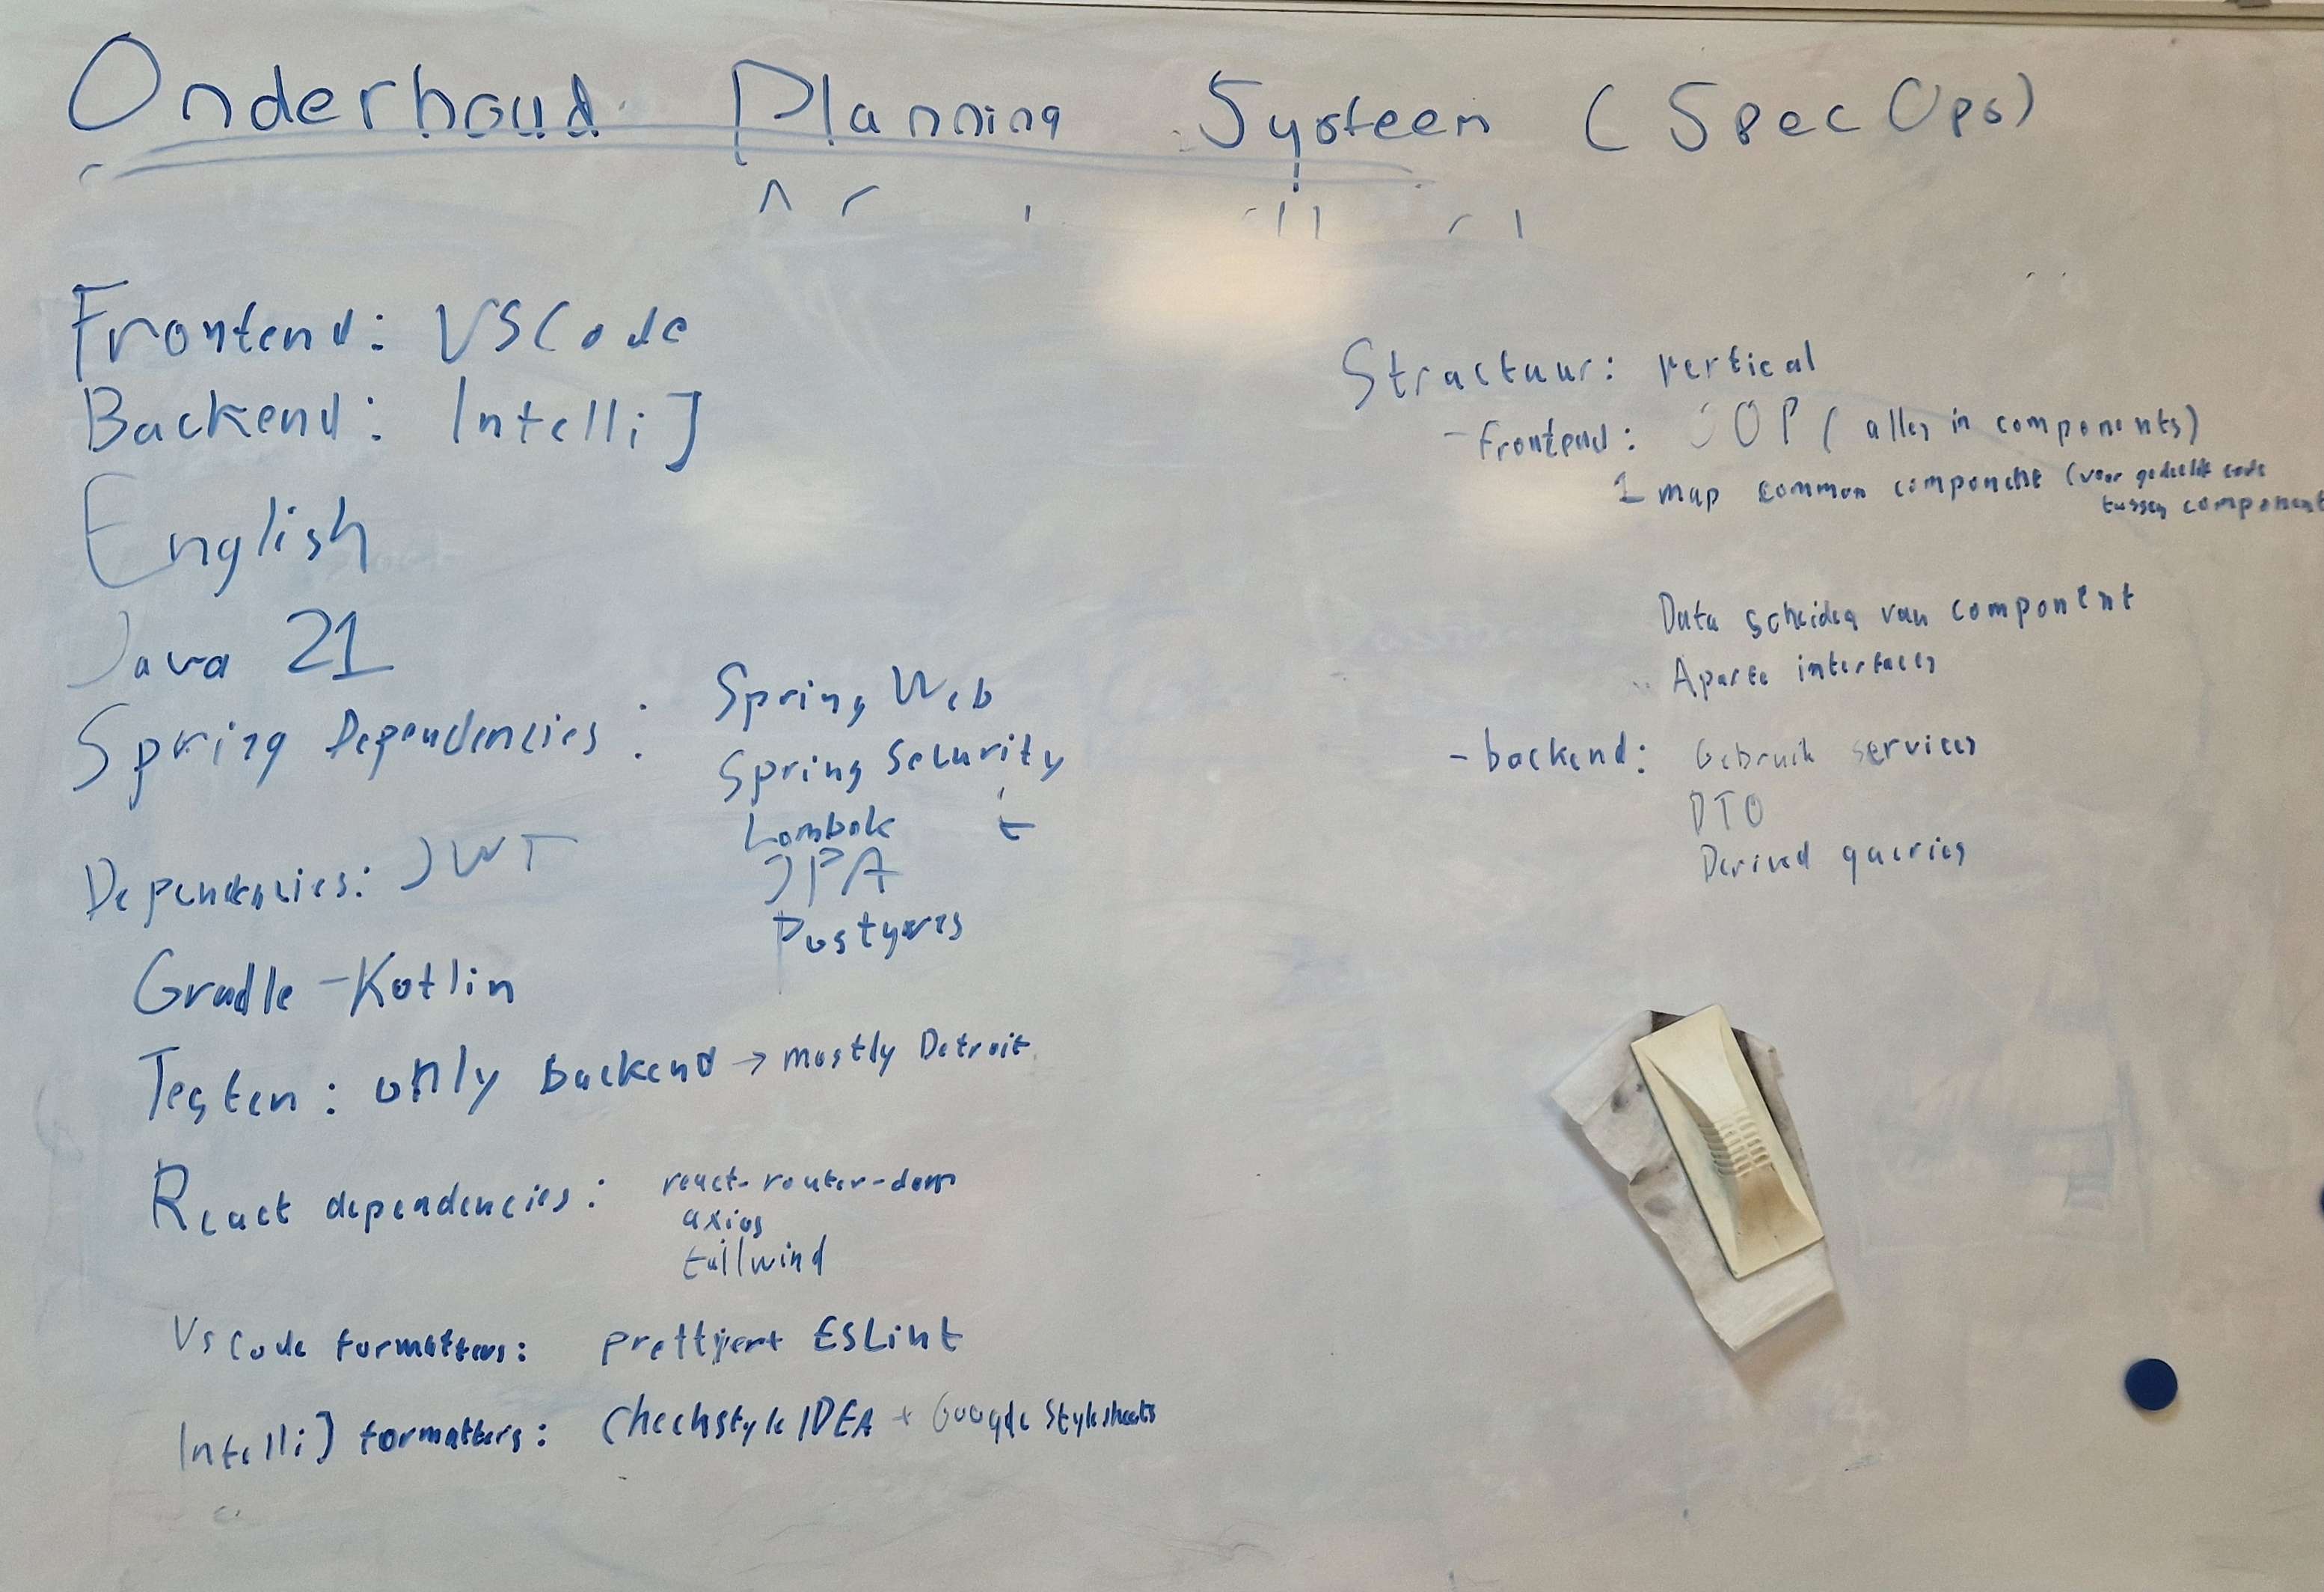 Onderhoud Planning Systeem (SpecOps)
Frontend: VSCode
Backend: IntelliJ
English
Java 21
Spring Dependencies: Spring Web
Spring Security
Lombok
JPA
Postgres
Dependencies: JWT
Gradle - Kotlin
Testen: only backend → mostly Detroit
React dependencies: react-router-dom
axios
tailwind
VsCode formatters: prettier+ ESLint
IntelliJ formatters: CheckstyleIDEA + Google Stylesheets
Structuur: vertical
- Frontend: OOP (alles in components)
1 map common component (voor gedeelde code
tussen component
Data scheiden van component
Aparte interfaces
- backend: Gebruik services
DTO
Derived queries